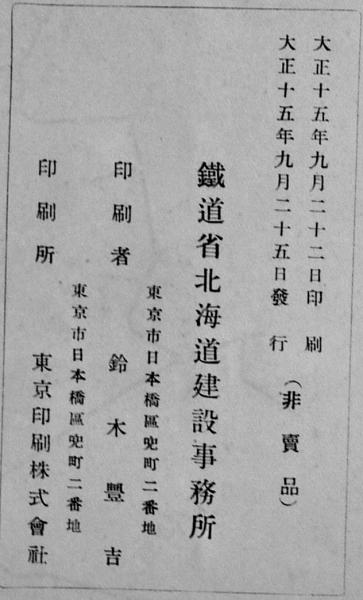 大正十五年九月二十二日印刷
大正十五年九月二十五日發行
（非賣品）
鐵道省北海道建設事務所
東京市日本橋區兜町二番地
印刷者 鈴木豐吉
東京市日本橋區兜町二番地
印刷所 東京印刷株式會社